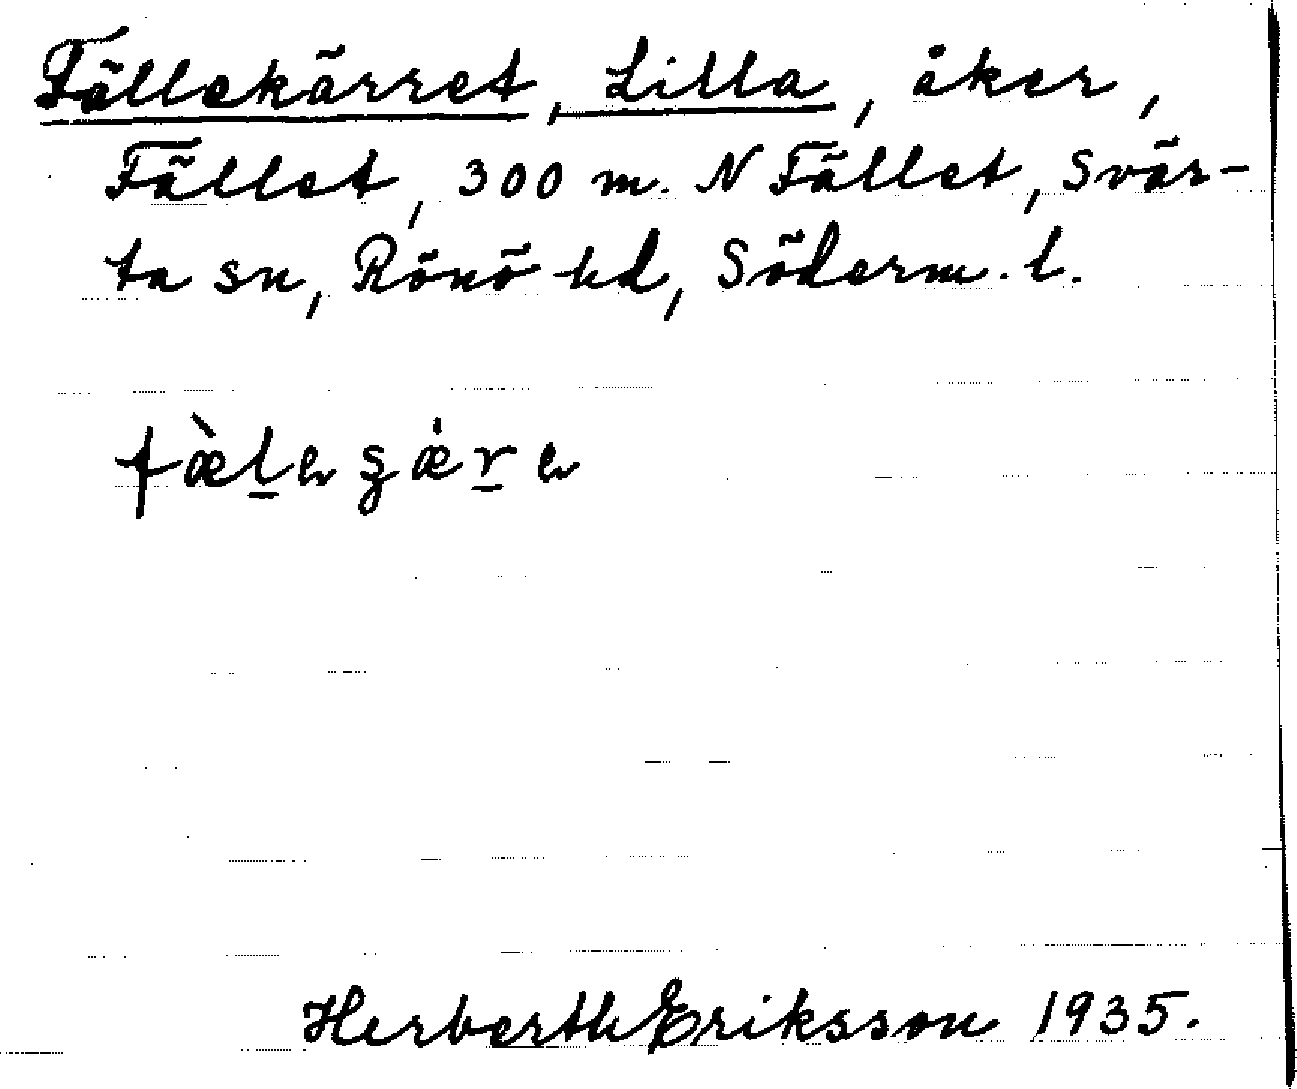 Fällekärret, Lilla, åker,
Fället, 300 m. N Fället, Svär-
ta sn, Rönö hd, Söderm. l.
Herberth Eriksson 1935.